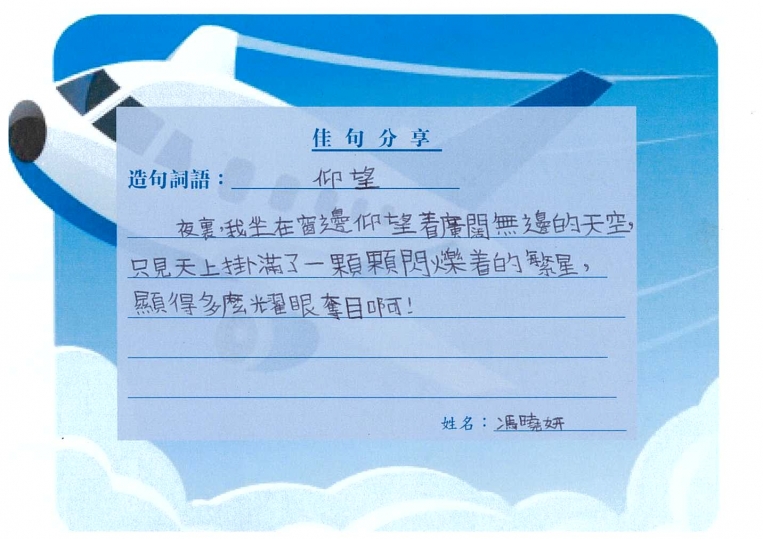 佳句分享
造句詞語：仰望
夜裏，我坐在窗邊仰望着廣闊無邊的天空，
只見天上掛滿了一顆顆閃爍着的繁星，
顯得多麼耀眼奪目啊！
姓名：馮曉妍